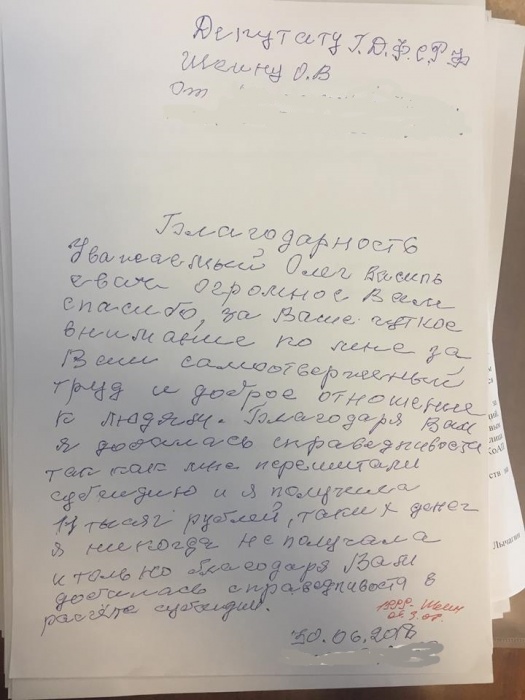 Депутату Г.Д.Ф.С.РФ
Шеину О.В
От
Благодарность
Уважаемый Олег Василь
евич огромное Вам
спасибо, за Ваше чуткое
внимание ко мне за
Ваш самоотверженный
труд и доброе отношение
к людям. Благодаря Вам
я добилась справедливости
так как мне пересчитали
субсидию и я получила
11 тысяч рублей, таких денег
я никогда не получала
и только благодаря Вам
добилась справедливости в
расчёте субсидии.
Шеин
30.06.2018
Лычагин